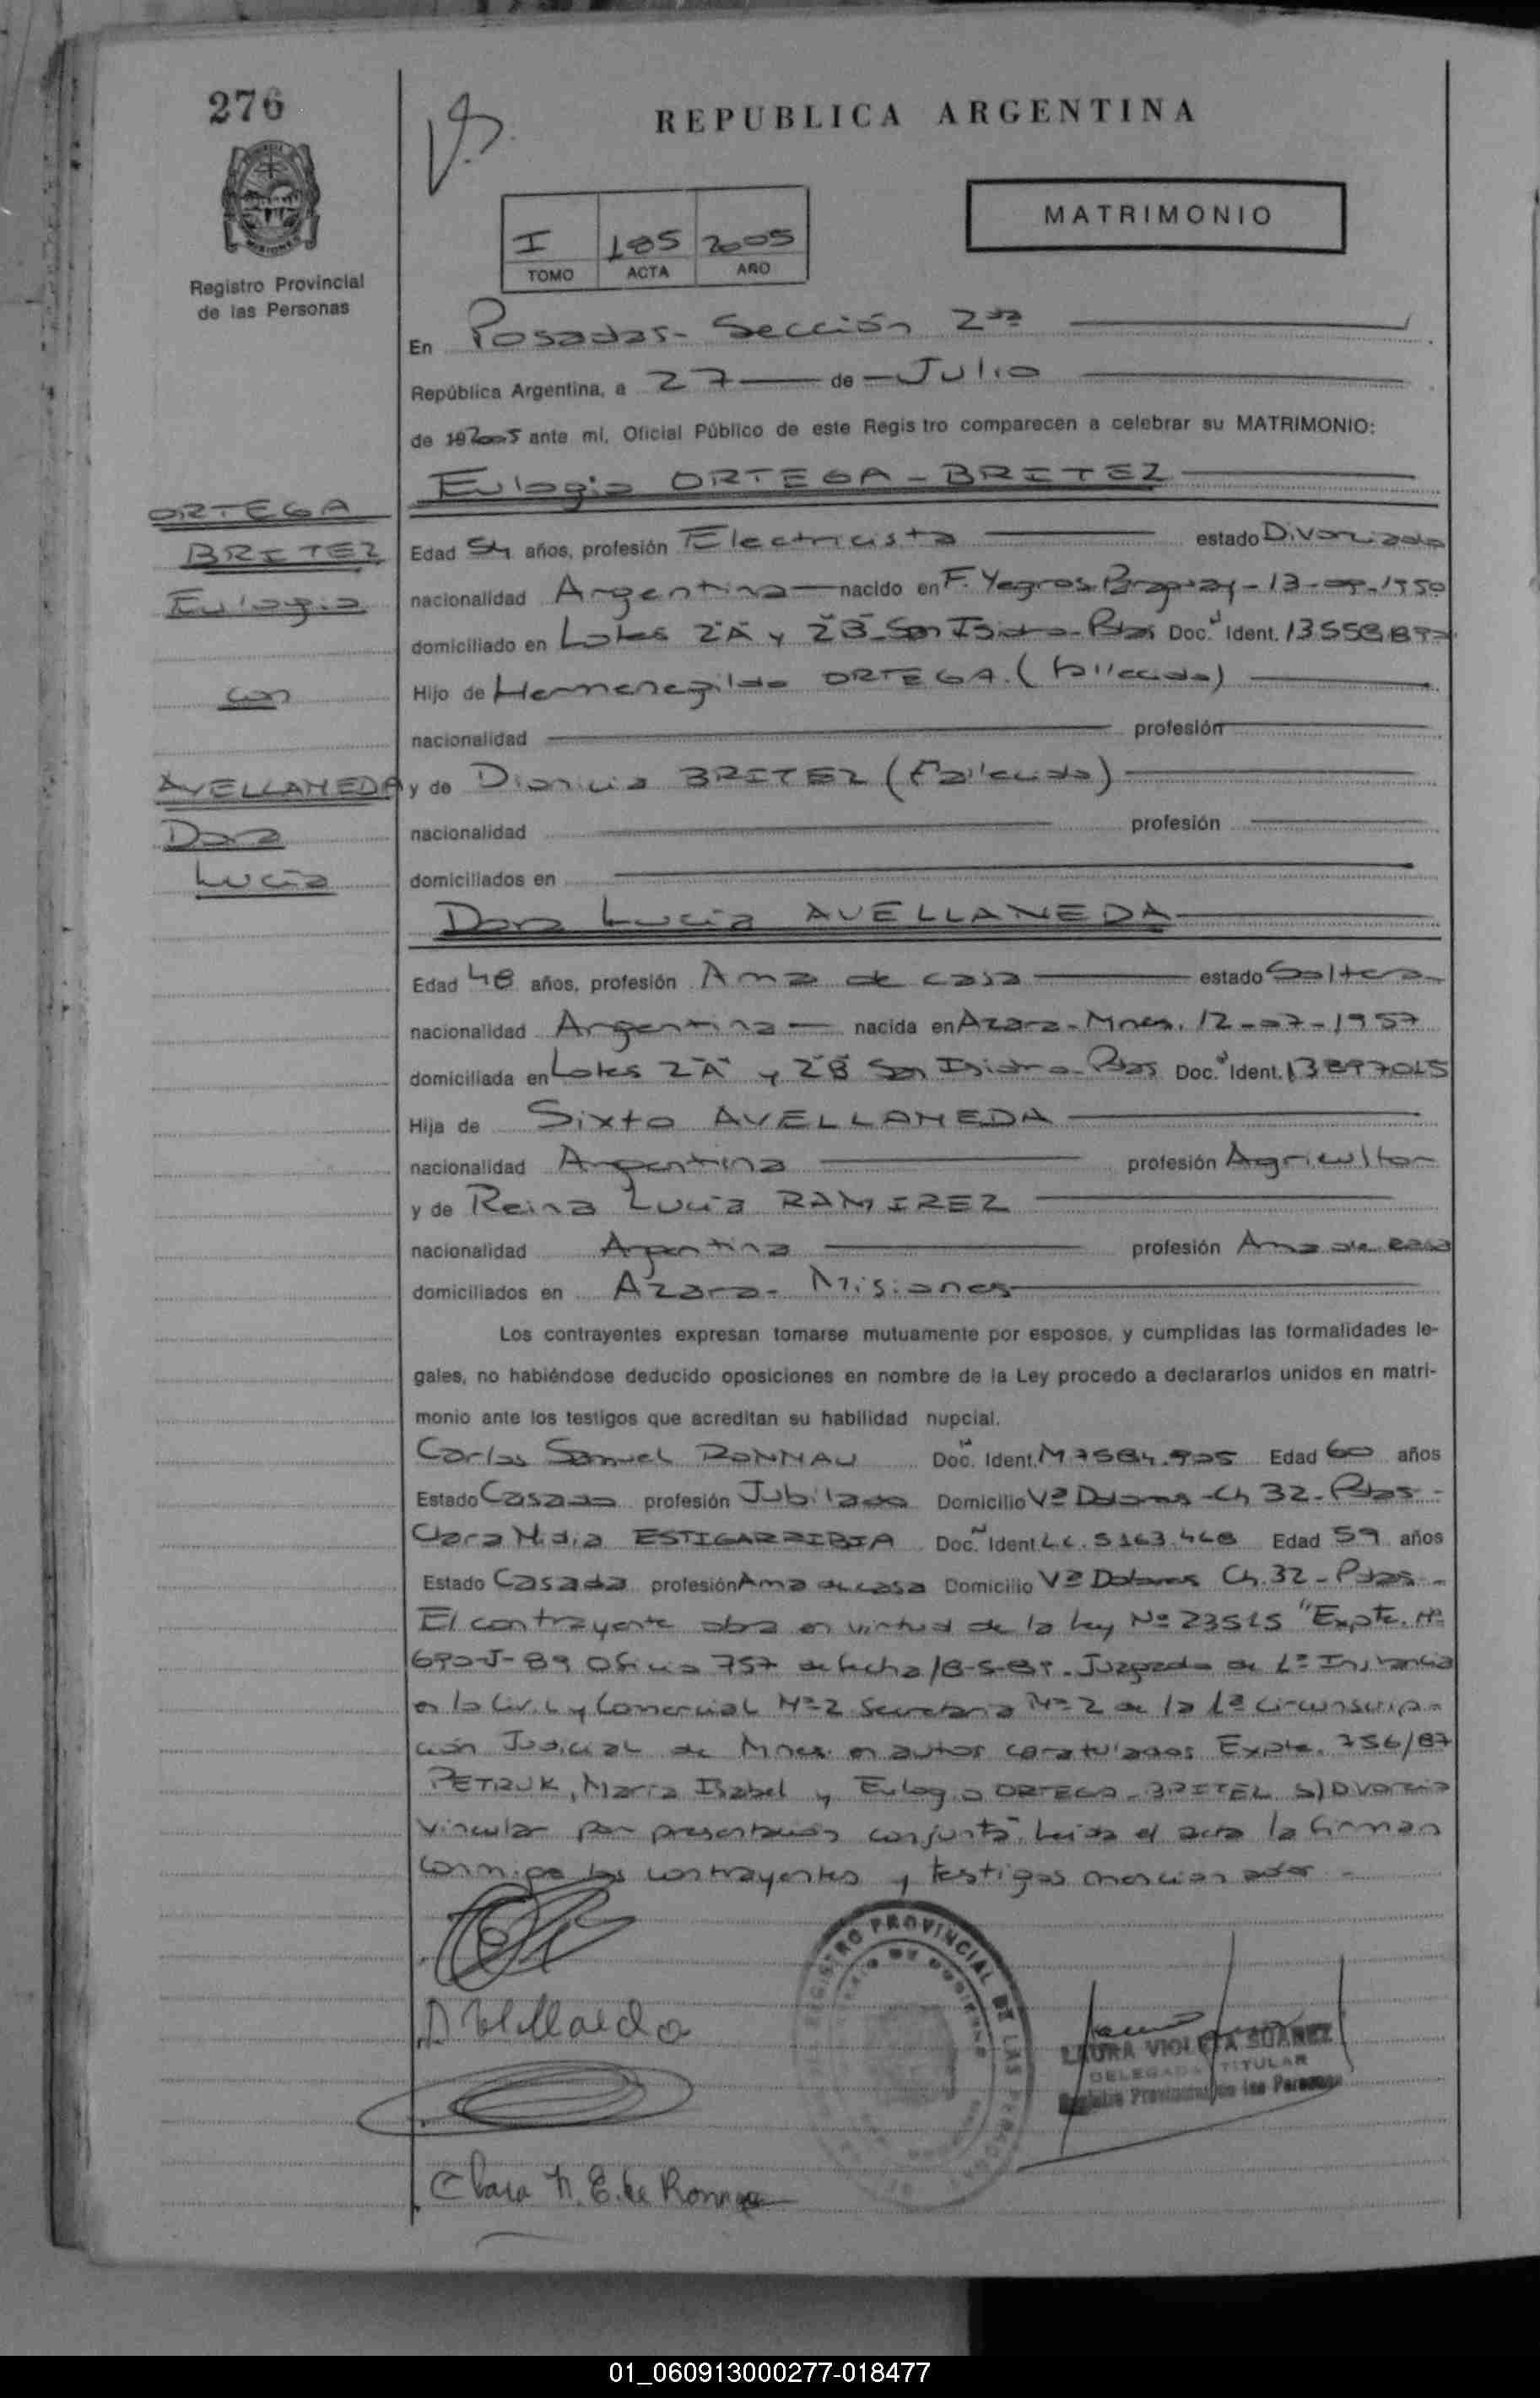 276
REPUBLICA ARGENTINA
MATRIMONIO
I 185 2005
TOMO ACTA AÑO
Registro Provincial
de las Personas
En Posadas - Sección 2da
República Argentina, a 27 de Julio
de 192005 ante mí, Oficial Público de este Registro comparecen a celebrar su MATRIMONIO:
Eulogio ORTEGA - BRITEZ
ORTEGA
BRITEZ
Eulogio
con
AVELLANEDA
Dora
Lucía
Edad 54 años, profesión Electricista estado Divorciado
nacionalidad Argentina nacido en F. Yegros Paraguay - 13-09-1950
domiciliado en Lotes 2"A" y 2"B" San Isidro - Pdas Doc. Ident. 13.558.897
Hijo de Hermenegildo ORTEGA (fallecido)
nacionalidad profesión
y de Dionicia BRITEZ (Fallecida)
nacionalidad profesión
domiciliados en
Dora Lucía AVELLANEDA
Edad 48 años, profesión Ama de casa estado Soltera
nacionalidad Argentina nacida en Azara - Mnes. 12-07-1957
domiciliada en Lotes 2"A" y 2"B" San Isidro - Pdas Doc. Ident. 13897015
Hija de Sixto AVELLANEDA
nacionalidad Argentina profesión Agricultor
y de Reina Lucía RAMIREZ
nacionalidad Argentina profesión Ama de casa
domiciliados en Azara - Misiones
Los contrayentes expresan tomarse mutuamente por esposos, y cumplidas las formalidades le-
gales, no habiéndose deducido oposiciones en nombre de la Ley procedo a declararlos unidos en matri-
monio ante los testigos que acreditan su habilidad nupcial.
Carlos Samuel RONNAU Doc. Ident. M 7584.905 Edad 60 años
Estado Casado profesión Jubilado Domicilio Vª Dolores - Ch 32 - Pdas -
Clara Nidia ESTIGARRIBIA Doc. Ident L.C. 5163.468 Edad 59 años
Estado Casada profesión Ama de casa Domicilio Vª Dolores Ch. 32 - Pdas -
El contrayente obra en virtud de la Ley Nº 23515 "Expte. Nº
690-J-89 Oficio 757 de fecha 18-5-89. Juzgado de 1ª Instancia
en lo Civil y Comercial Nº 2 Secretaria Nº 2 de la 1ª Circunscrip-
ción Judicial de Mnes. en autos caratulados Expte. 756/87
PETRUK, María Isabel y Eulogio ORTEGA - BRITEZ S/Divorcio
vincular por presentación conjunta". Leida el acta la firman
conmigo los contrayentes y testigos mencionados -
REGISTRO PROVINCIAL DE LAS PERSONAS
LAURA VIOLETA SUAREZ
DELEGADA TITULAR
Registro Provincial de las Personas
Clara N. E. de Ronnau
01_060913000277-018477